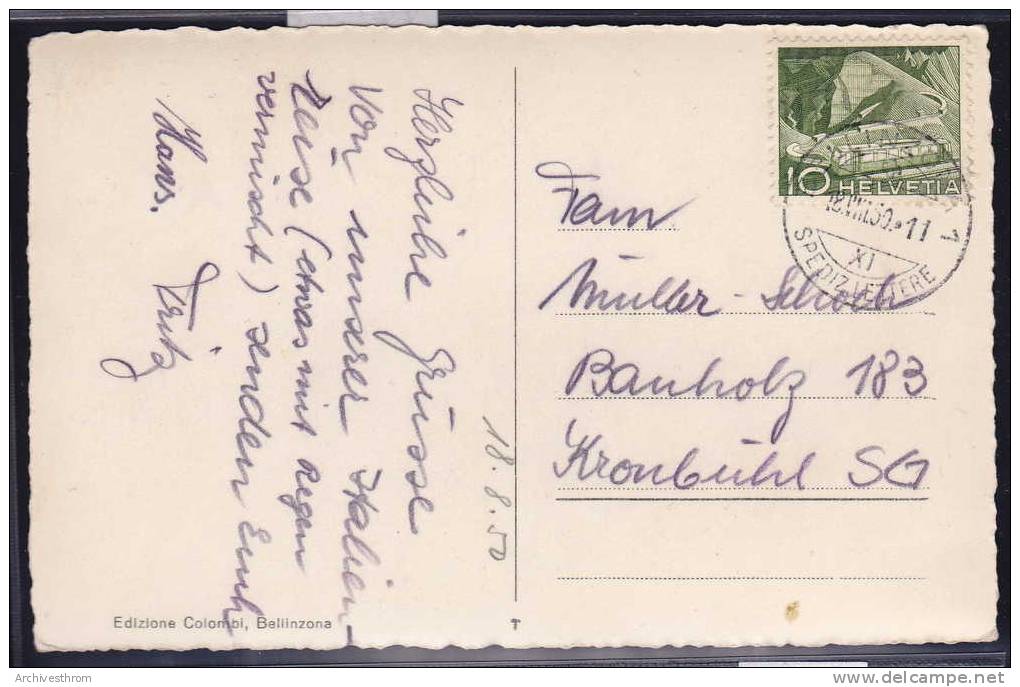 Herzliche Grüsse
Von unserer Italien-
Reise (etwas mit Regen
vermischt) senden Euch
Hans. Fritz
18.8.50
Edizione Colombi, Bellinzona
T
10 HELVETIA
18.VIII.50.*11
1
XI
SPEDIZ. LETTERE
Fam.
Müller-Schoch
Bauholz 183
Kronbühl SG
Archivesthrom
www.delcampe.net